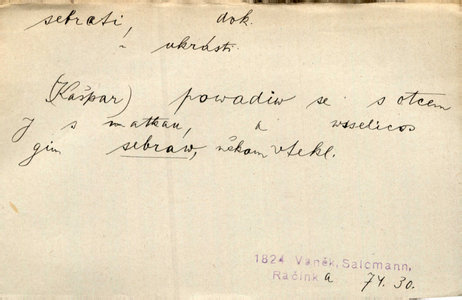 sebrati, dok.
~ ukrásti.
(Kašpar) powadiw se s otcem
y s matkau, a wsselicos
gim sebraw, někam vtekl.
1824 Vaněk, Salcmann,
Ráčink a 74. 30.